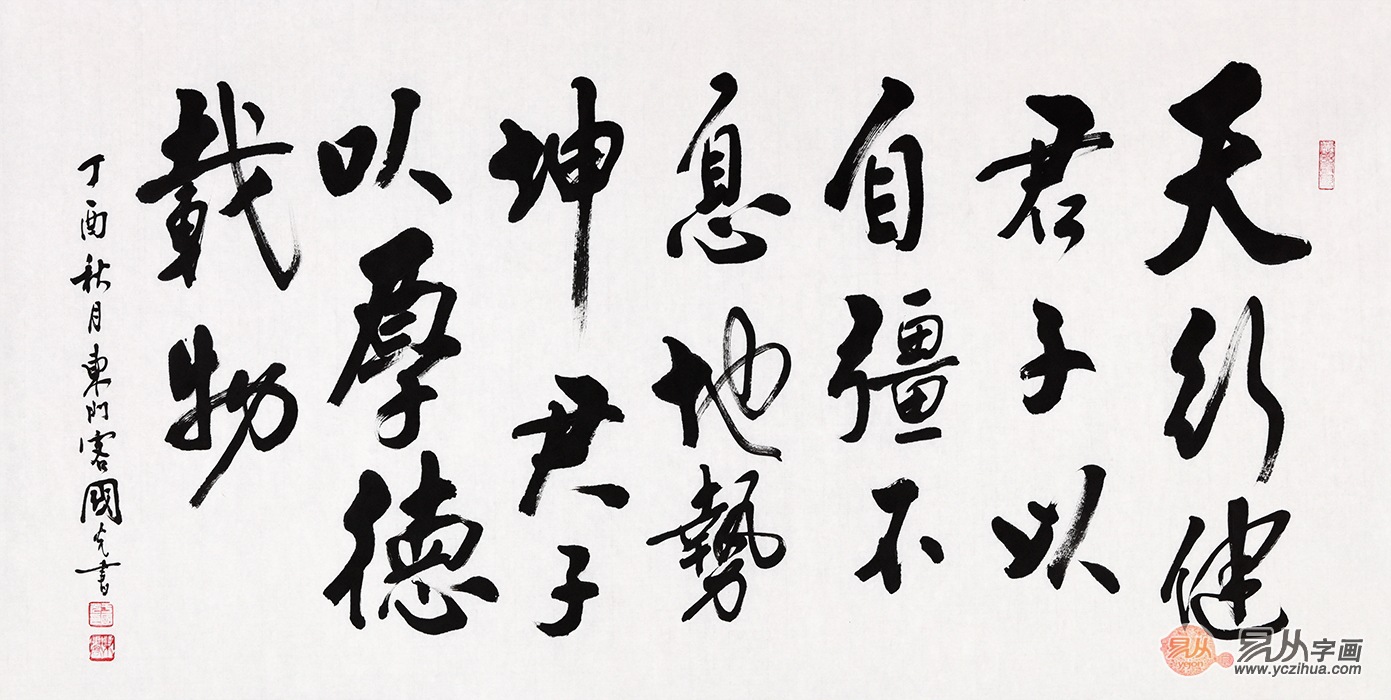 天行健
君子以
自彊不
息地勢
坤君子
以厚德
載物
丁酉秋月東門客國光書
易从字画
www.yczihua.com
yejon